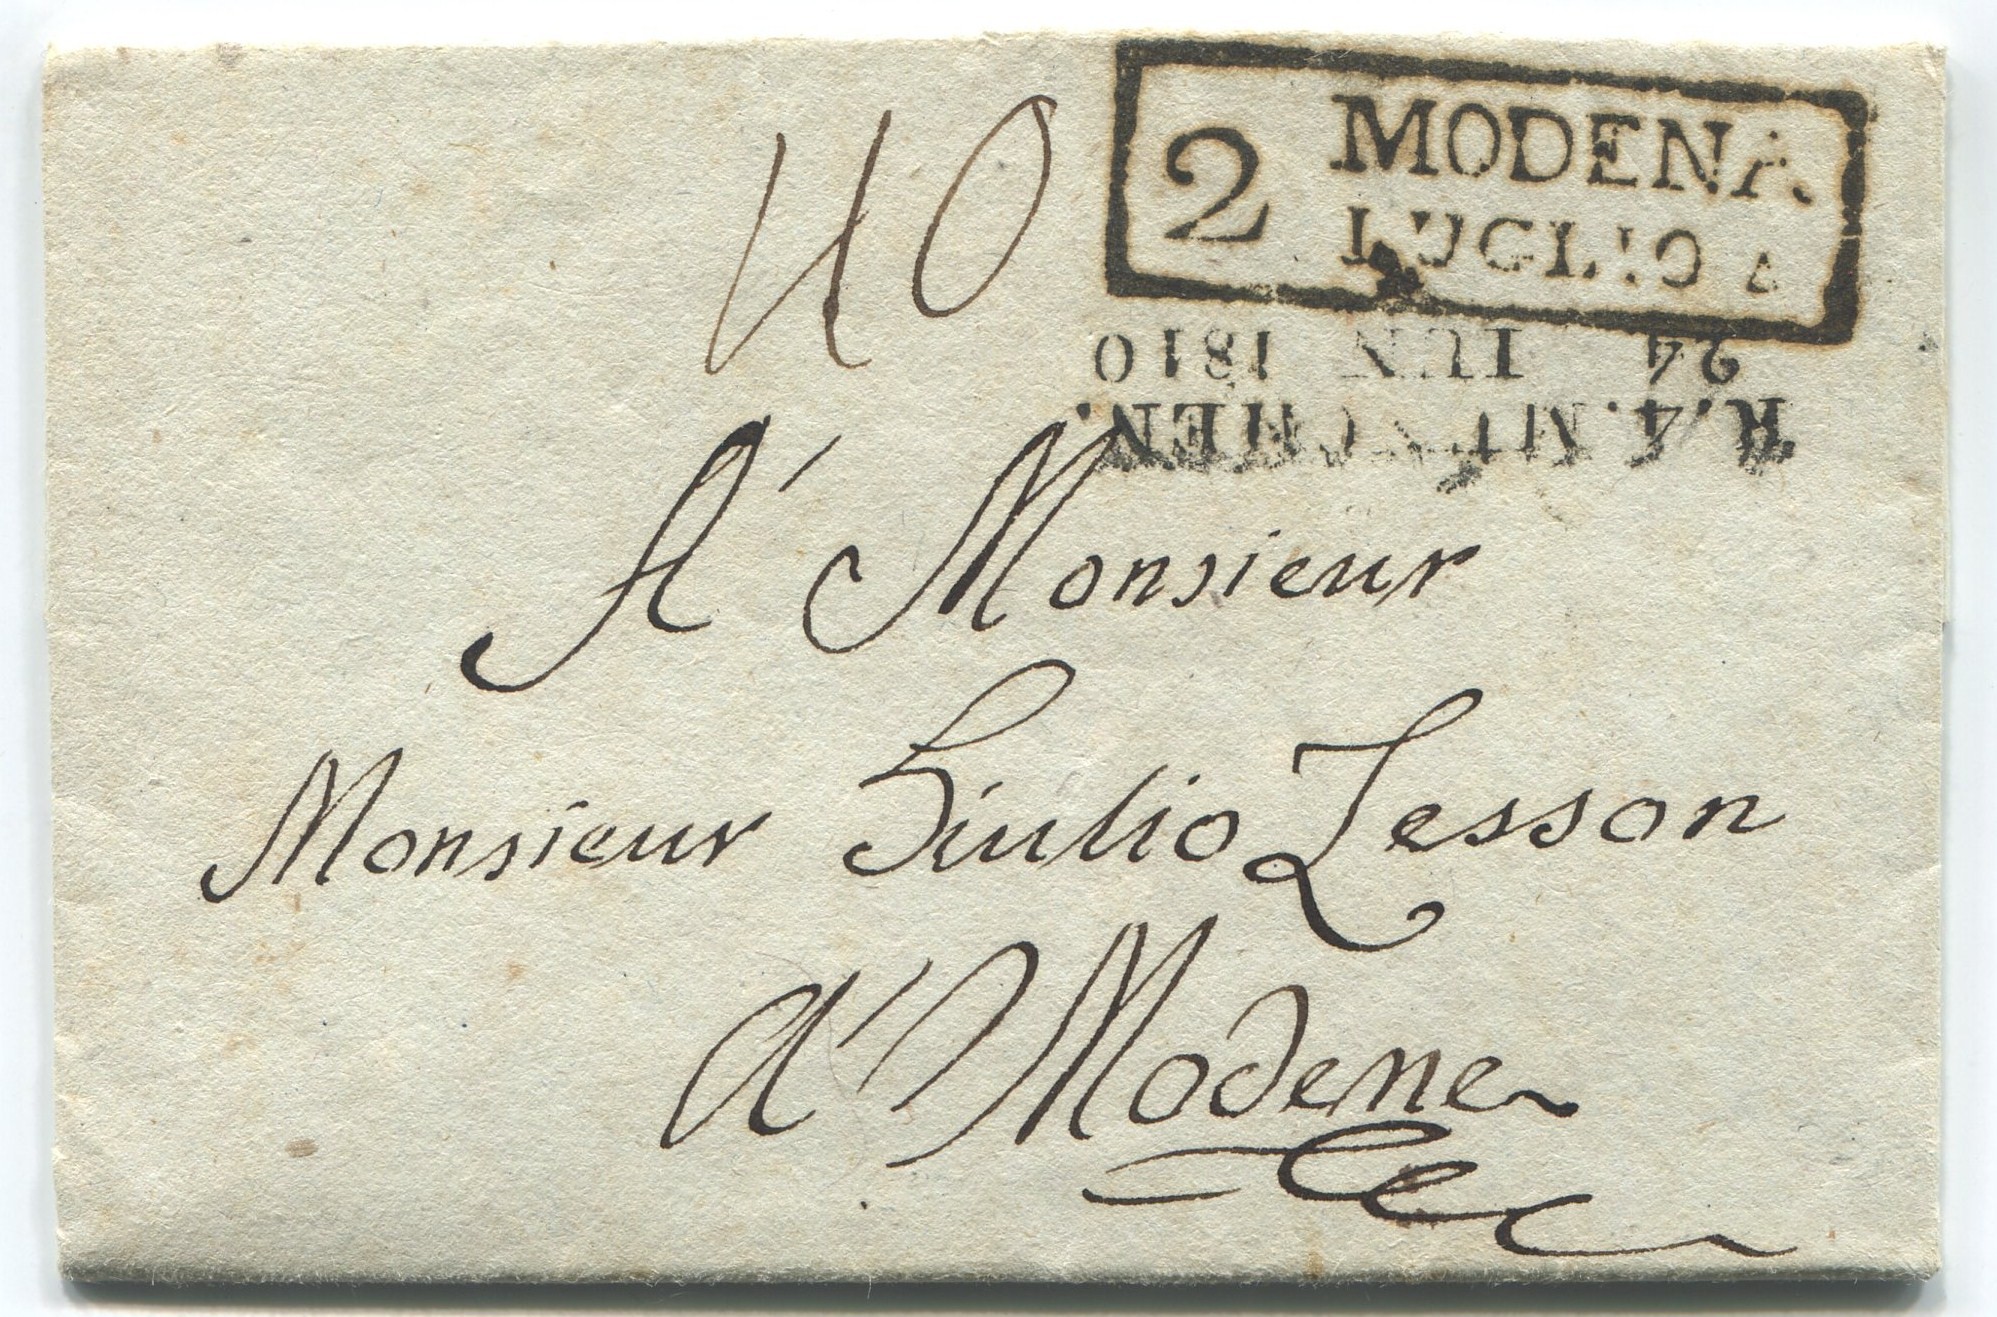 2 MODENA.
LUGLIO
R.4.MÜNCHEN.
24 IUN 1810
40
A' Monsieur
Monsieur Giulio Lesson
a' Modene